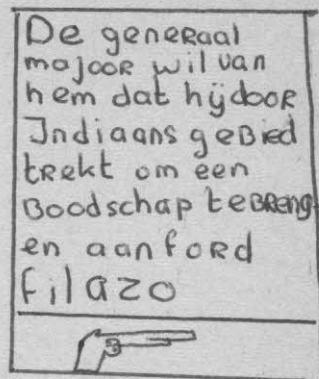 De geneRaal
majooR wil van
hem dat hijdooR
Indiaans geBied
tRekt om een
Boodschap teBReng
en aan foRD
filazo